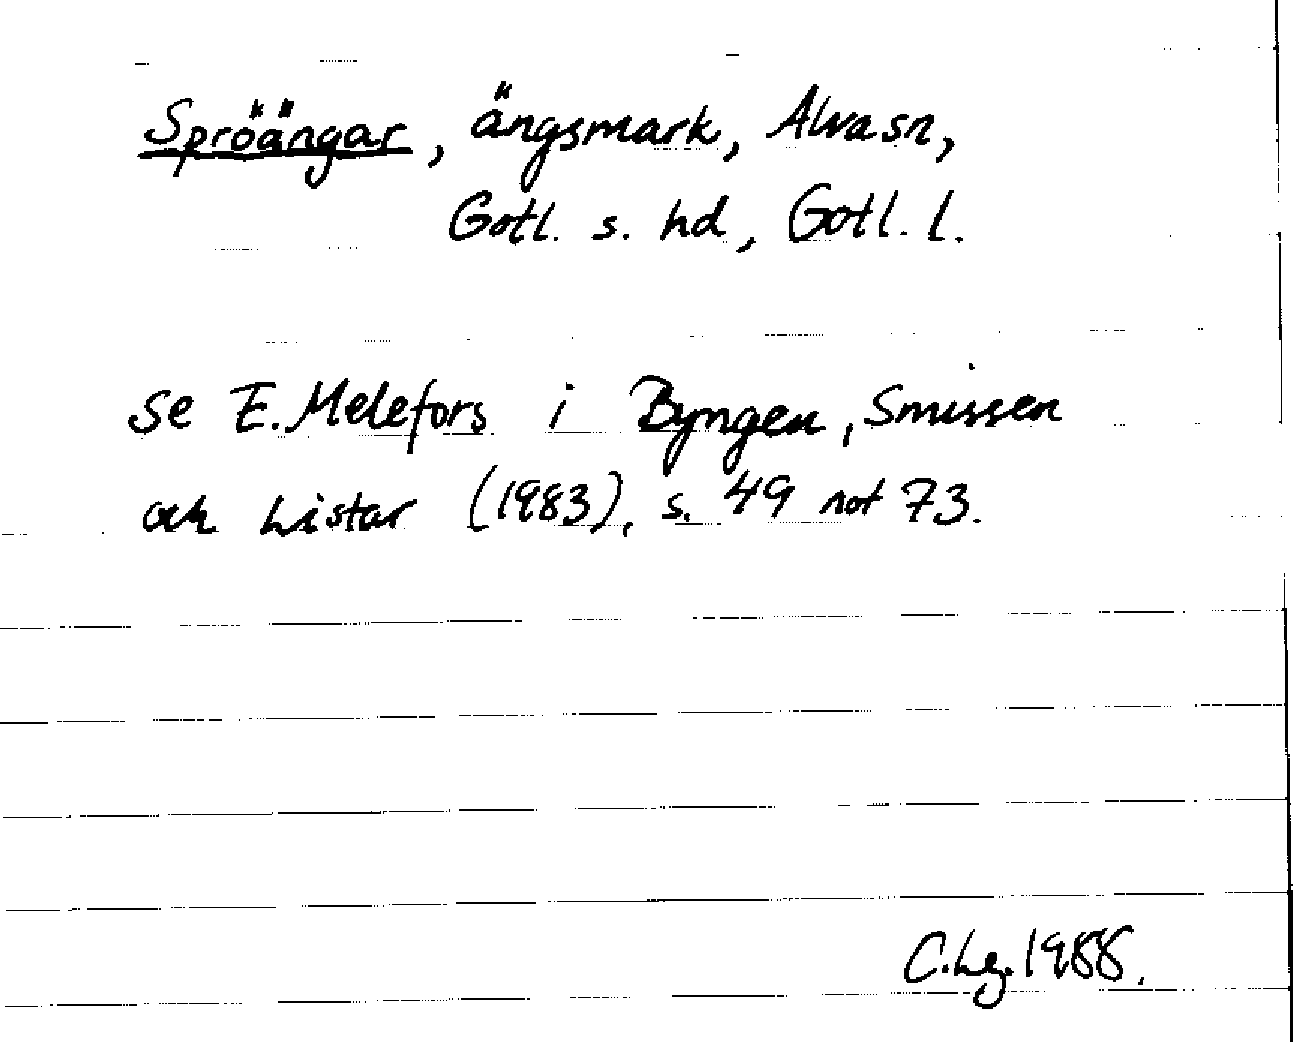 Spröängar, ängsmark, Alva sn,
Gotl. s. hd, Gotl. l.
se E. Melefors i Byngen, Smissen
och Listar (1983), s. 49 not 73.
C.Lg. 1988.